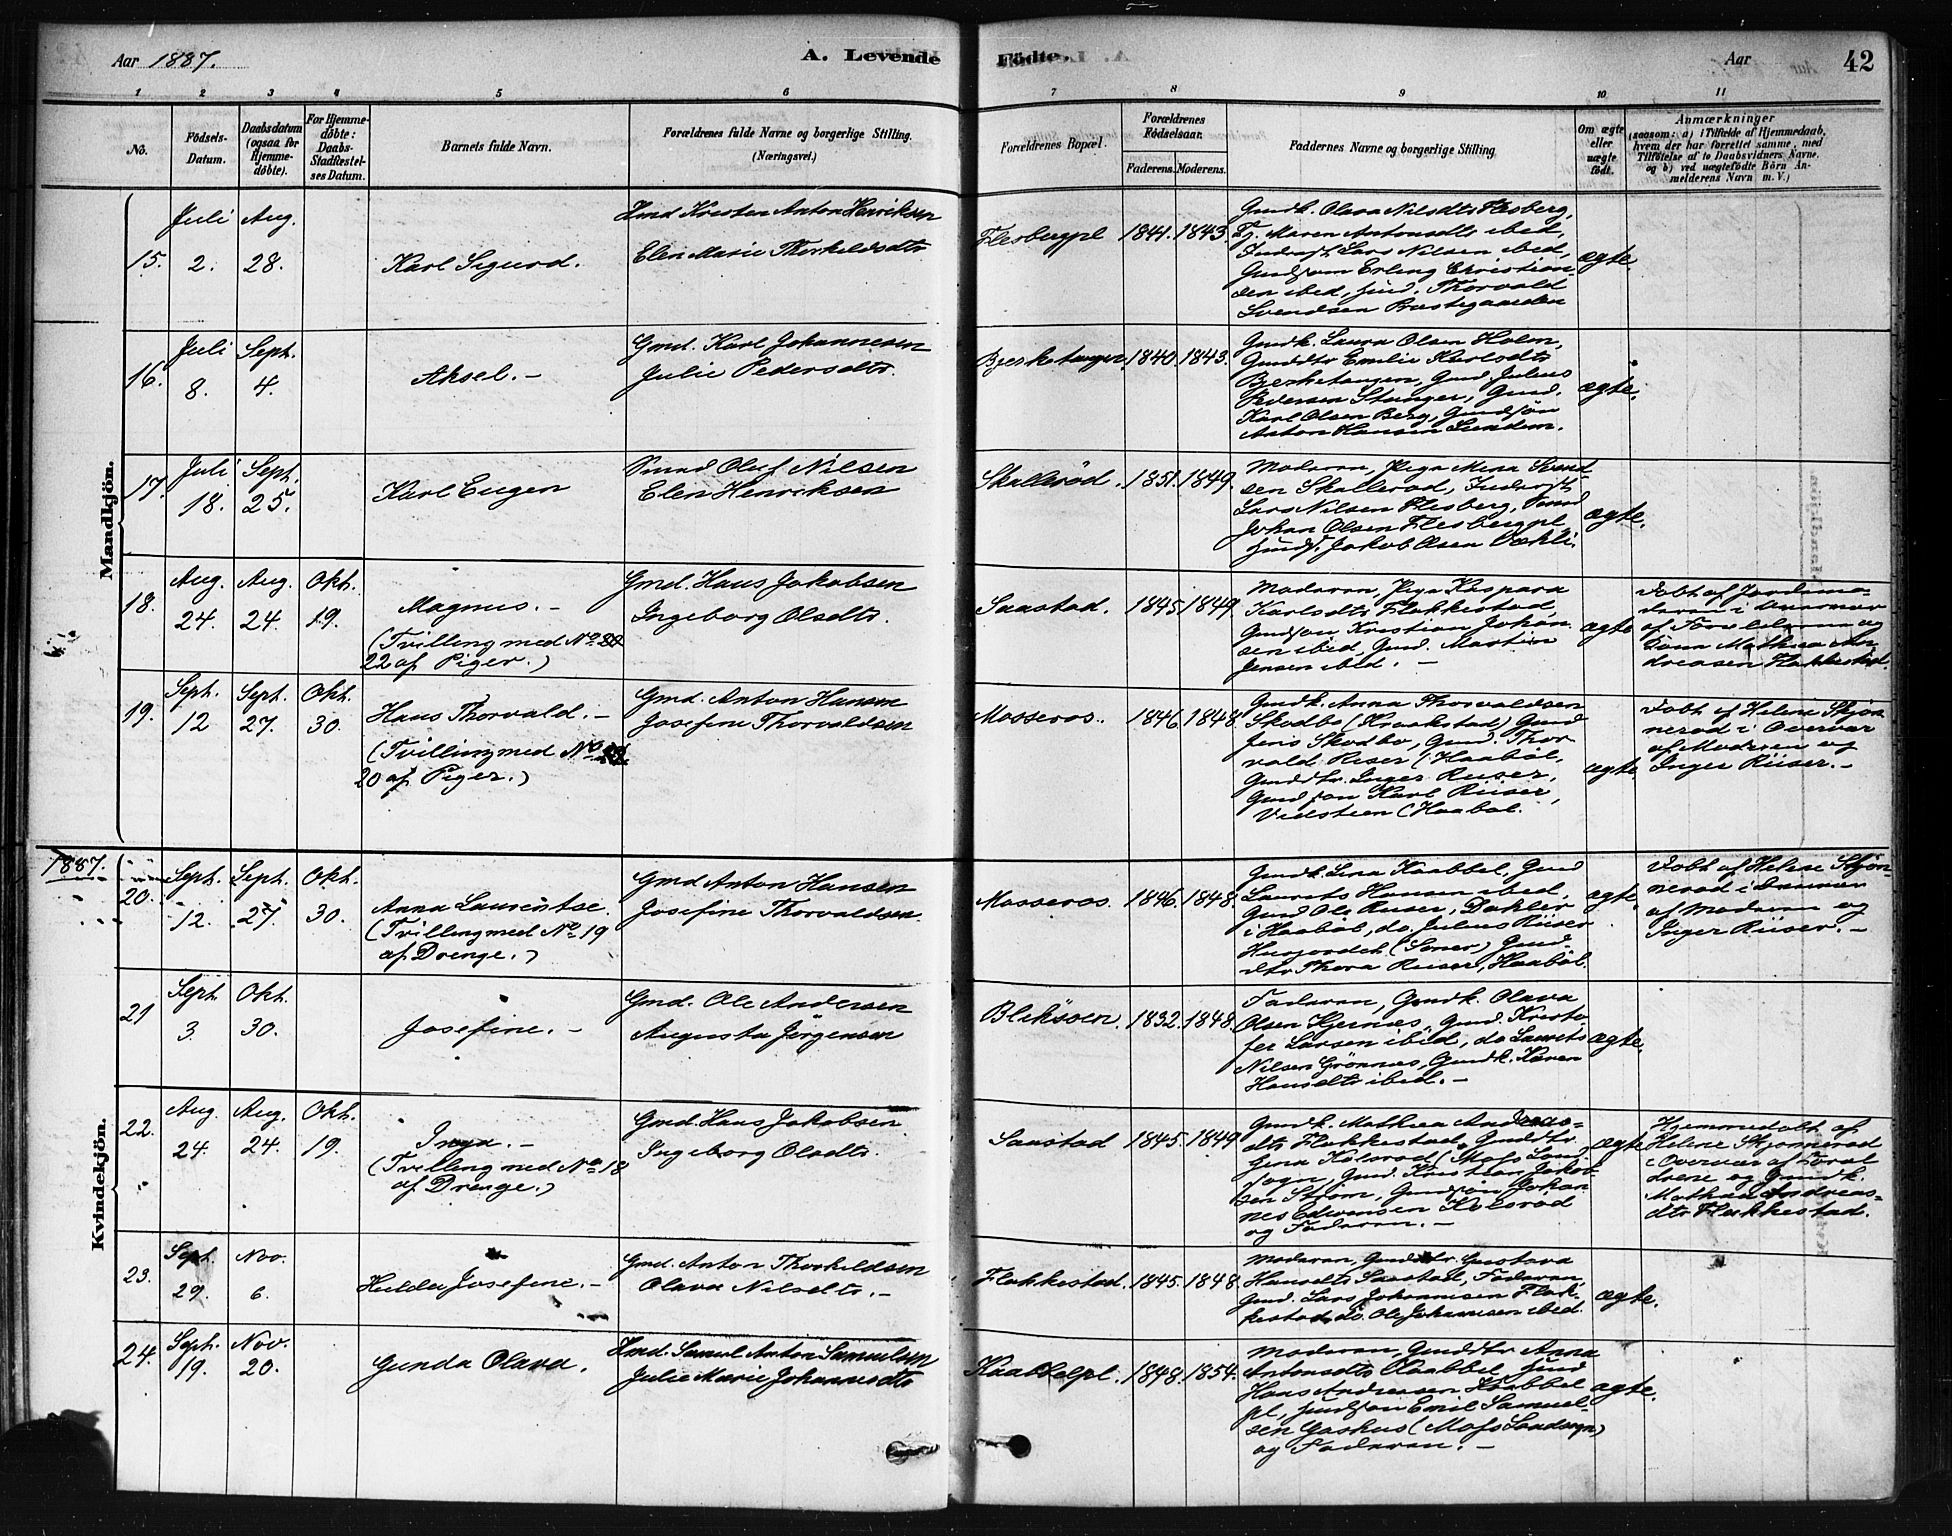 Aar 1887.
A. Levende Födte.
Aar
42
1 2 3 4 5 6 7 8 9 10 11
No.
Födsels-
Datum.
Daabsdatum
(ogsaa for
Hjemme-
döbte).
For Hjemme-
döbte:
Daabs-
Stadfæstel-
ses Datum.
Barnets fulde Navn.
Forældrenes fulde Navne og borgerlige Stilling.
(Næringsvei.)
Forældrenes Bopæl.
Forældrenes
Födselsaar.
Faderens. Moderens.
Faddernes Navne og borgerlige Stilling
Om ægte
eller
uægte
födt.
Anmærkninger
(saasom: a) i Tilfælde af Hjemmedaab,
hvem der har forrettet samme, med
Tilföielse af to Daabsvidners Navne,
og b) ved uægtefödte Börn An-
melderens Navn m. V.)
Mandkjön.
15.
Juli
2.
Aug.
28.
Karl Sigurd.
Hmd Kristen Anton Henriksen
Elen Marie Thorkildsdtr
Flesbergpl
1841. 1843.
Gmdk. Olava Nilsdtr Flesberg,
Pg. Maren Antonsdtr ibid,
Inderst Lars Nilsen ibid,
Gmdsøn Erling Christian-
sen ibid, Hmd. Thorvald
Svendsen Præstegaarden
ægte.
16.
Juli
8.
Sept.
4.
Aksel. –
Gmd. Karl Johannesen
Julie Pedersdtr.
Bjerketangen
1840. 1843.
Gmdk. Laura Olsen Holm,
Gmddtr Emilie Karlsdtr
Bjerketangen, Gmd. Julius
Pedersen Stanger, Gmd.
Karl Olsen Berg, Gmdsøn
Anton Hansen
ægte.
17.
Juli
18.
Sept.
25.
Karl Eugen
Smed Oluf Nilsen
Elen Henriksen
Skallerød.
1851. 1849.
Moderen, Pige Mina Svend-
sen Skallerød, Inderst
Lars Nilsen Flesberg, Smed
Johan Olsen Flesbergpl,
Jakob Olsen
ægte.
18.
Aug.
24.
Aug.
24.
Okt.
19.
Magnus. –
(Tvilling med No
22 af Piger.)
Gmd. Hans Jakobsen
Ingeborg Olsdtr.
Saastad.
1845. 1849
Moderen, Pige Kaspara
Karlsdtr Flakkestad,
Gmdsøn Kristian Johan
sen ibid, Gmd. Martin
Jensen ibid. –
ægte
Døbt af Jordemo-
deren i Overvær
af Forældrene og
Kone Mathea An-
dreasen Flakkestad.
19.
Sept.
12
Sept.
27.
Okt.
30.
Hans Thorvald. –
(Tvilling med No
20 af Piger.)
Gmd. Anton Hansen
Josefine Thorvaldsen
Mosseros.
1846. 1848.
Gmdk. Anna Thorvaldsen
Skodbo (Kraakstad) Gmd
Jens Skodbo, Gmd. Thor
vald Riser (Haabøl,
Gmddtr. Inger Riiser,
Gmdsøn Karl Riiser,
Vidsteen (Haabøl.
ægte.
Døbt af Helene Skjøn-
nerød i Overvær
af Moderen og
Inger Riiser. –
Kvindekjön.
1887.
20.
Sept.
12.
Sept.
27.
Okt.
30.
Anna Laurentse.
(Tvilling med No 19
af Drenge.)
Gmd Anton Hansen
Josefine Thorvaldsen.
Mosseros.
1846. 1848.
Gmdk Lina Kaabbel, Gmd
Laurits Hansen ibid,
Gmd Ole Riiser, Dahler
i Haabøl, do. Julius Riiser
(Soner) Gmd-
dtr Thora Riiser, Haabøl.
ægte.
Døbt af Helene Skjøn-
nerød i Overvær
af Moderen og
Inger Riiser. –
21
Sept
3.
Okt.
30.
Josefine. –
Gmd. Ole Andersen
Augusta Jørgensen
Bliksøen.
1832. 1848.
Faderen, Gmdk. Olava
Olsen Kjernæs, Gmd. Kristo
fer Larsen ibid, do Laurits
Nilsen Grønnes, Gmdk. Karen
Hansdtr ibid. –
ægte.
22.
Aug.
24.
Aug.
24.
Okt.
19.
Inga. –
(Tvilling med No 18
af Drenge.)
Gmd. Hans Jakobsen
Ingeborg Olsdtr.
Saastad
1845. 1849
Gmdk. Mathea Andreas-
dtr Flakkestad, Gmddtr.
Jena Kolsrød (Moss Land
sogn, Gmd. Kristian Jakob-
sen Strøm, Gmdsøn Johan
nes Edvardsen Kolsrød
og Faderen. –
ægte
Hjemmedøbt af
Helene Skjønnerød
i Overvær af Foræl
drene og Gmdk.
Mathea Andreas-
dtr Flakkestad.
23.
Sept.
29.
Nov.
6.
Hulda Josefine. –
Gmd. Anton Thorkildsen
Olava Nilsdtr. –
Flakkestad.
1845. 1848
Moderen, Gmddtr. Gustava
Hansdtr Saastad, Faderen,
Gmd. Lars Johannesen Flak-
kestad, do. Ole Johannesen ibid.
ægte.
24.
Sept.
19.
Nov.
20.
Gunda Olava.
Hmd. Samuel Anton Samuelsen
Julie Marie Johannesdtr
Kaabbelpl.
1848. 1854.
Moderen, Gmddtr Anna
Antonsdtr Kaabbel, Hmd
Hans Andreasen Kaabbel
pl, Hmdsøn Emil Samuel-
sen Gashus (Moss Landsogn)
og Faderen. –
ægte.